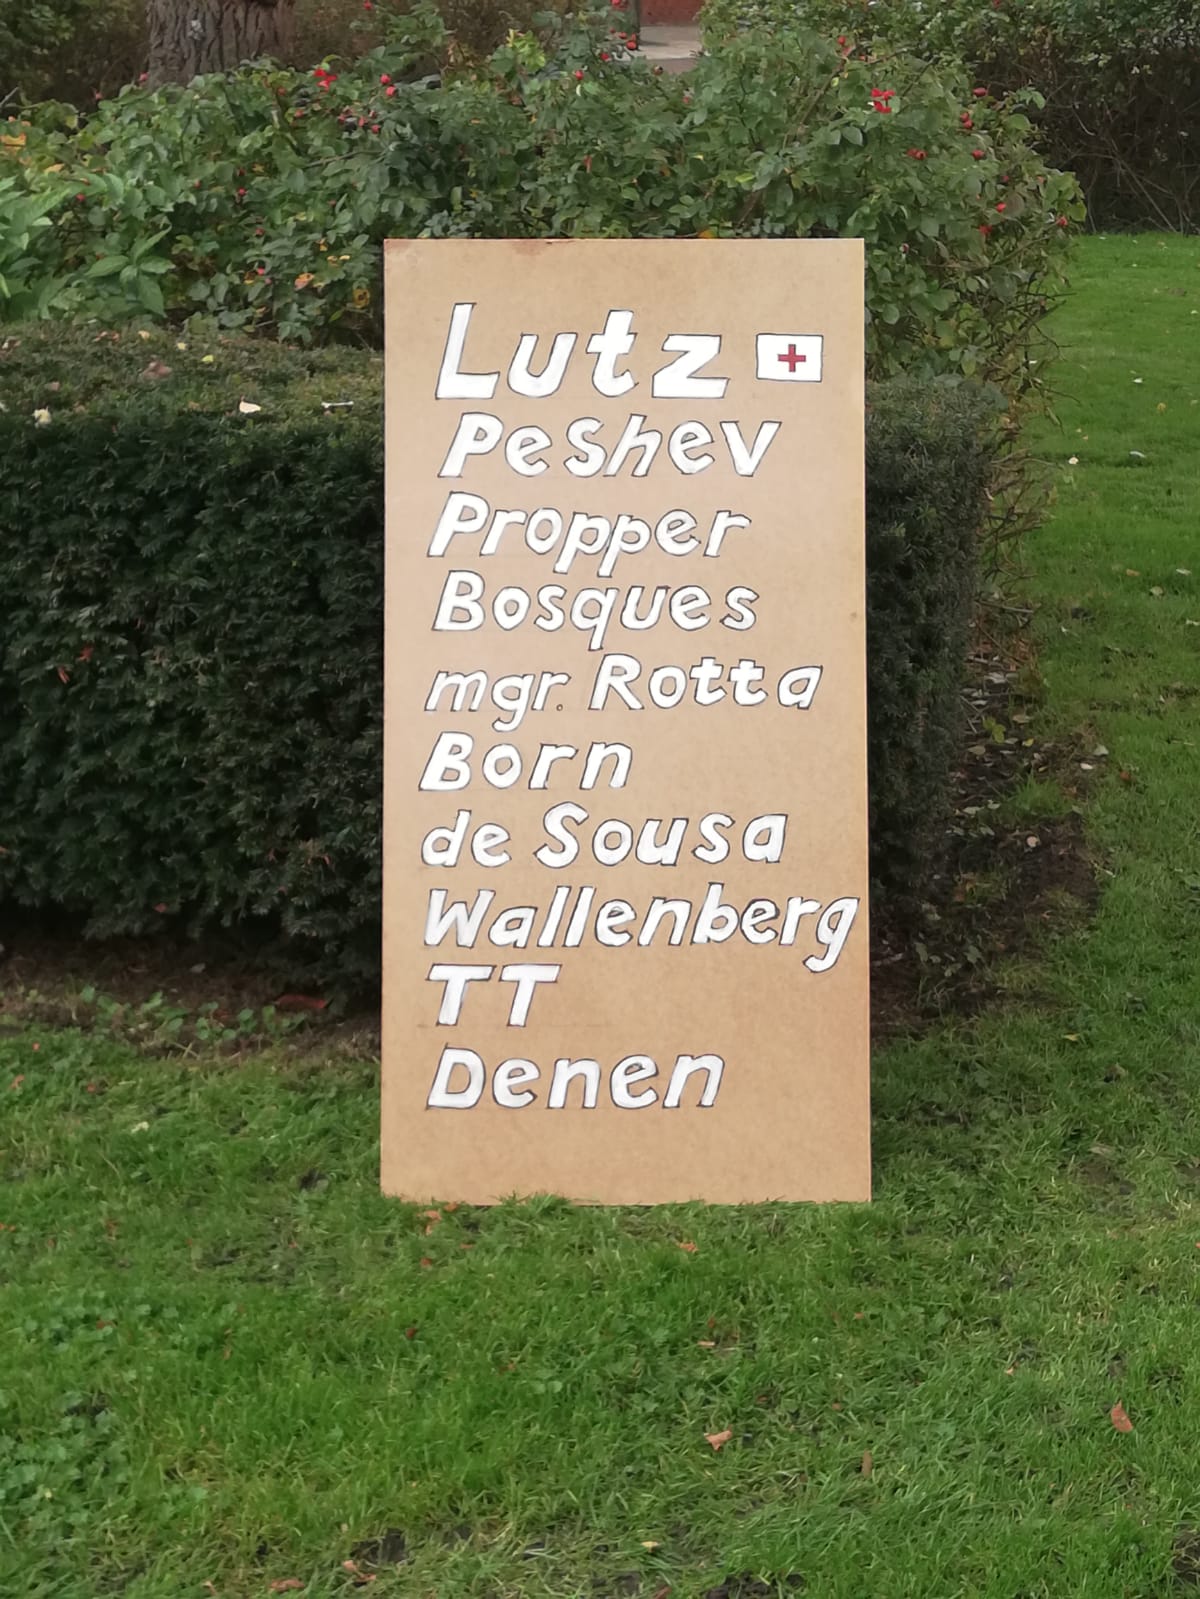 Lutz
Peshev
Propper
Bosques
mgr. Rotta
Born
de Sousa
Wallenberg
TT
Denen